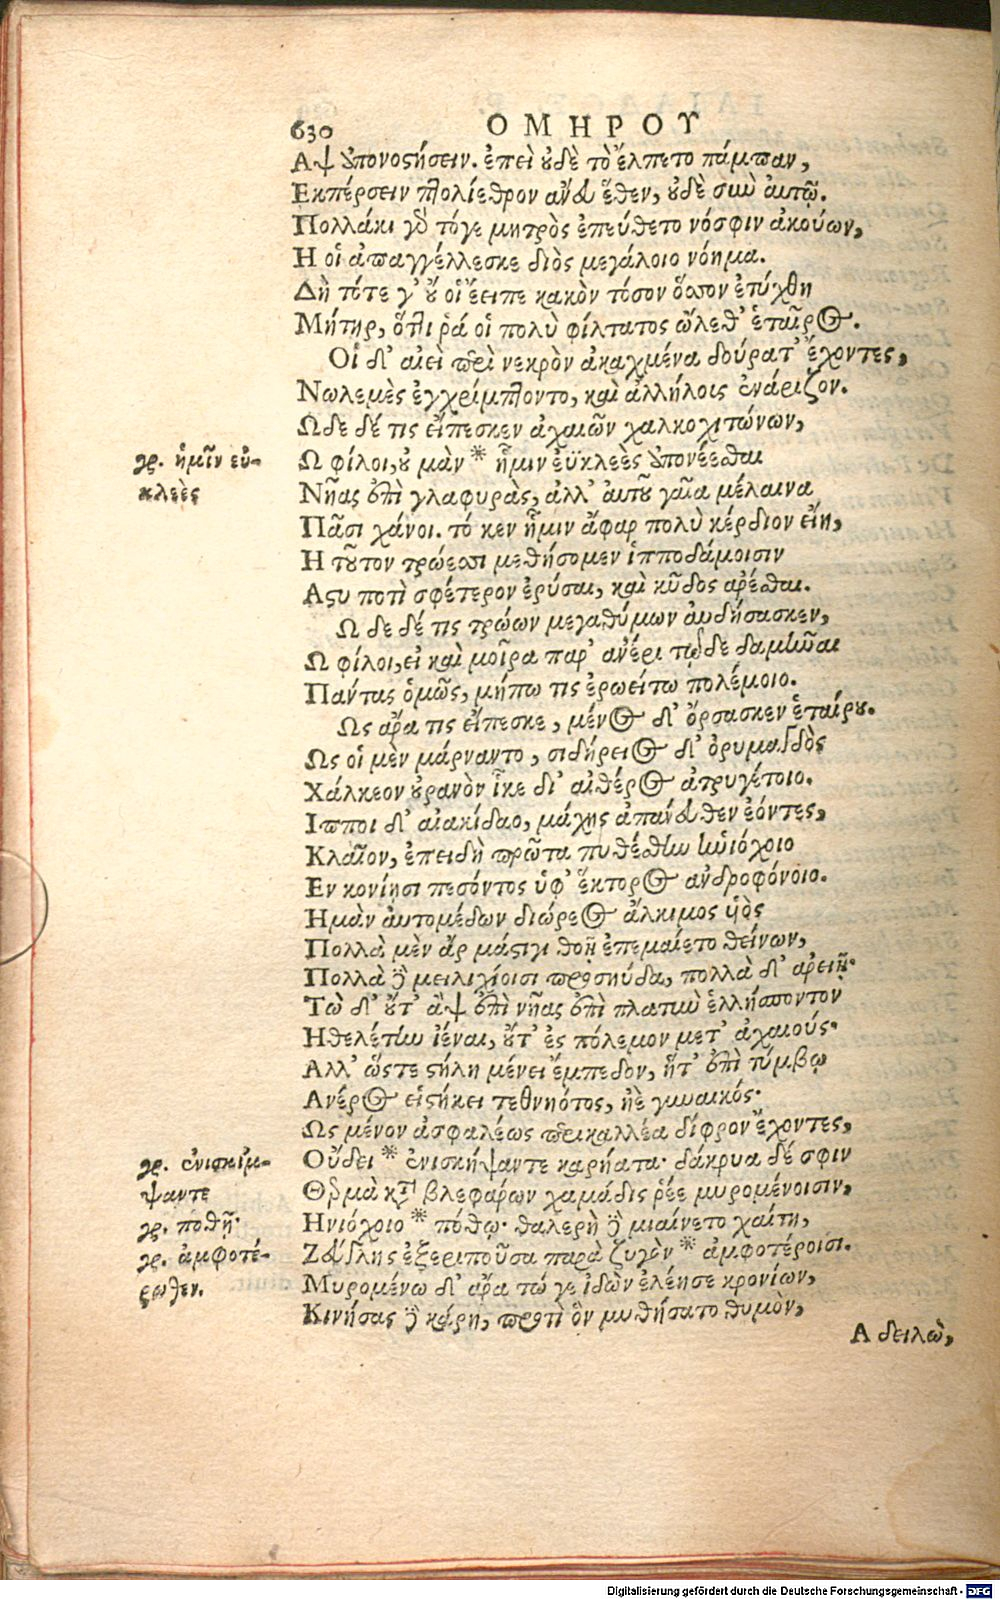 630 ΟΜΗΡΟΥ
Αψ ἀπονοστήσειν. ἐπεὶ οὐδὲ τὸ ἔλπετο πάμπαν,
Εκπέρσειν πτολίεθρον ἄνευ ἕθεν, οὐδὲ σὺν αὐτῷ.
Πολλάκι γὰρ τόγε μητρὸς ἐπεύθετο νόσφιν ἀκούων,
Η οἱ ἀπαγγέλλεσκε διὸς μεγάλοιο νόημα.
Δὴ τότε γ' οὔ οἱ ἔειπε κακὸν τόσον ὅσσον ἐτύχθη
Μήτηρ, ὅττι ῥά οἱ πολὺ φίλτατος ὤλεθ' ἑταῖρος.
Οἱ δ' αἰεὶ περὶ νεκρὸν ἀκαχμένα δούρατ' ἔχοντες,
Νωλεμὲς ἐγχρίμπτοντο, καὶ ἀλλήλοις ἐνάριζον.
Ωδε δέ τις εἴπεσκεν ἀχαιῶν χαλκοχιτώνων,
γρ. ἡμῖν εὐ-
κλεὲς
Ω φίλοι, οὐ μὰν * ἧμιν ἐϋκλεὲς ἀπονέεσθαι
Νῆας ἐπὶ γλαφυρὰς, ἀλλ' αὐτοῦ γαῖα μέλαινα
Πᾶσι χάνοι. τό κεν ἧμιν ἄφαρ πολὺ κέρδιον εἴη,
Η τοῦτον τρώεσσι μεθήσομεν ἱπποδάμοισιν
Αστυ ποτὶ σφέτερον ἐρύσαι, καὶ κῦδος ἀρέσθαι.
Ω δε δέ τις τρώων μεγαθύμων αὐδήσασκεν,
Ω φίλοι, εἰ καὶ μοῖρα παρ' ἀνέρι τῷδε δαμῆναι
Παντας ὁμῶς, μήπω τις ἐρωείτω πολέμοιο.
Ως ἄρα τις εἴπεσκε, μένος δ' ὄρσασκεν ἑταίρου.
Ως οἱ μὲν μάρναντο, σιδήρειος δ' ὀρυμαγδὸς
Χάλκεον οὐρανὸν ἷκε δι' αἰθέρος ἀτρυγέτοιο.
Ιπποι δ' αἰακίδαο, μάχης ἀπάνευθεν ἐόντες,
Κλαῖον, ἐπειδὴ πρῶτα πυθέσθην ἡνιόχοιο
Εν κονίῃσι πεσόντος ὑφ' ἕκτορος ἀνδροφόνοιο.
Ημὰν αὐτομέδων διώρεος ἄλκιμος υἱὸς
Πολλὰ μὲν ἂρ μάστιγι θοῇ ἐπεμαίετο θείνων,
Πολλὰ δὲ μειλιχίοισι προσηύδα, πολλὰ δ' ἀρειῇ·
Τὼ δ' οὔτ' ἂψ ἐπὶ νῆας ἐπὶ πλατὺν ἑλλήσποντον
Ηθελέτην ἰέναι, οὔτ' ἐς πόλεμον μετ' ἀχαιούς·
Αλλ' ὥστε στήλη μένει ἔμπεδον, ἥτ' ἐπὶ τύμβῳ
Ανέρος εἱστήκει τεθνηότος, ἠὲ γυναικός·
Ως μένον ἀσφαλέως περικαλλέα δίφρον ἔχοντες,
γρ. ἐνισκίμ-
ψαντε
γρ. ποθῇ·
γρ. ἀμφοτέ-
ρωθεν.
Οὔδει * ἐνισκήψαντε καρήατα· δάκρυα δέ σφιν
Θερμὰ κατὰ βλεφάρων χαμάδις ῥέε μυρομένοισιν,
Ηνιόχοιο * πόθῳ· θαλερὴ δὲ μιαίνετο χαίτη,
Ζεύγλης ἐξεριποῦσα παρὰ ζυγὸν * ἀμφοτέροισι.
Μυρομένω δ' ἄρα τώ γε ἰδὼν ἐλέησε κρονίων,
Κινήσας δὲ κάρη, προτὶ ὃν μυθήσατο θυμὸν,
Α δειλὼ,
Digitalisierung gefördert durch die Deutsche Forschungsgemeinschaft - DFG